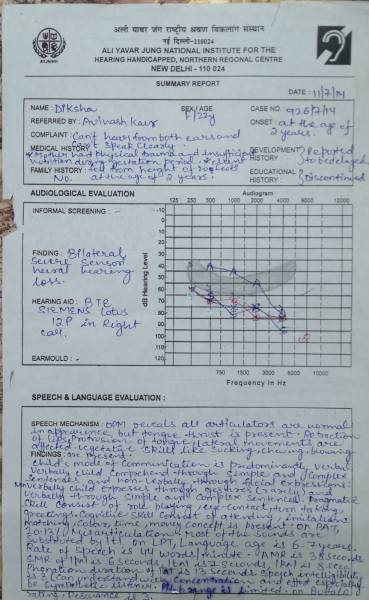 अली यावर जंग राष्ट्रीय श्रवण विकलांग संस्थान
नई दिल्ली-110024
ALI YAVAR JUNG NATIONAL INSTITUTE FOR THE
HEARING HANDICAPPED, NORTHERN REGIONAL CENTRE
NEW DELHI - 110 024
SUMMARY REPORT
DATE : 11/7/14
NAME : Diksha SEX/AGE F/22y CASE NO. 926/7/14
REFERRED BY : Avinash Kaur ONSET : at the age of 2 years.
COMPLAINT : Can't hear from both ears and can't speak clearly
MEDICAL HISTORY : Mother had physical trauma and insufficient nutrition during gestation period. DEVELOPMENT HISTORY : Reported to be delayed
fell from height of 20 feets at the age of 2 years.
FAMILY HISTORY : No. EDUCATIONAL HISTORY : Discontinued
AUDIOLOGICAL EVALUATION
Audiogram
INFORMAL SCREENING : -
125 250 500 1000 2000 4000 8000 12000
-10
0
10
20
30
40
50
60
70
80
90
100
110
120
dB Hearing Level
FINDING : Bilateral
severe sensori
neural hearing
loss.
HEARING AID : BTE
SIEMENS Lotus
12P in Right
ear.
EARMOULD : -
750 1500 3000 6000 10000
Frequency In Hz
SPEECH & LANGUAGE EVALUATION :
SPEECH MECHANISM : OPM reveals all articulators are normal
in appearance but tongue thrust is present. Retraction
of lips, Protrusion of tongue, lateral movements are
affected. Vegetative skills like sucking, chewing, blowing
FINDINGS : are Present.
child's mode of communication is Predominantly verbal
Verbally child comprehend through simple and complex
sentences and non-verbally through facial expressions.
verbally child expresses through gestures and
verbally through simple and complex sentences. Pragmatic
skill consist of role playing, eye-contact, turn taking,
greeting. Cognitive skill consist of attending, imitation,
matching, colour, time, money concept is present. On PAT,
Misarticulation. Most of the sounds are
substituted by On LPT, Language age is 6-7 years.
Rate of speech is 44 words/minute. AMR is 38 seconds
SMR of is 6 seconds is 7 seconds, is 8 sec
Phonation duration of is 13 seconds. Speech intelligibility
is 3 (can understand with concentration and effort especially
by sympathetic listener.
rating. Resonance is